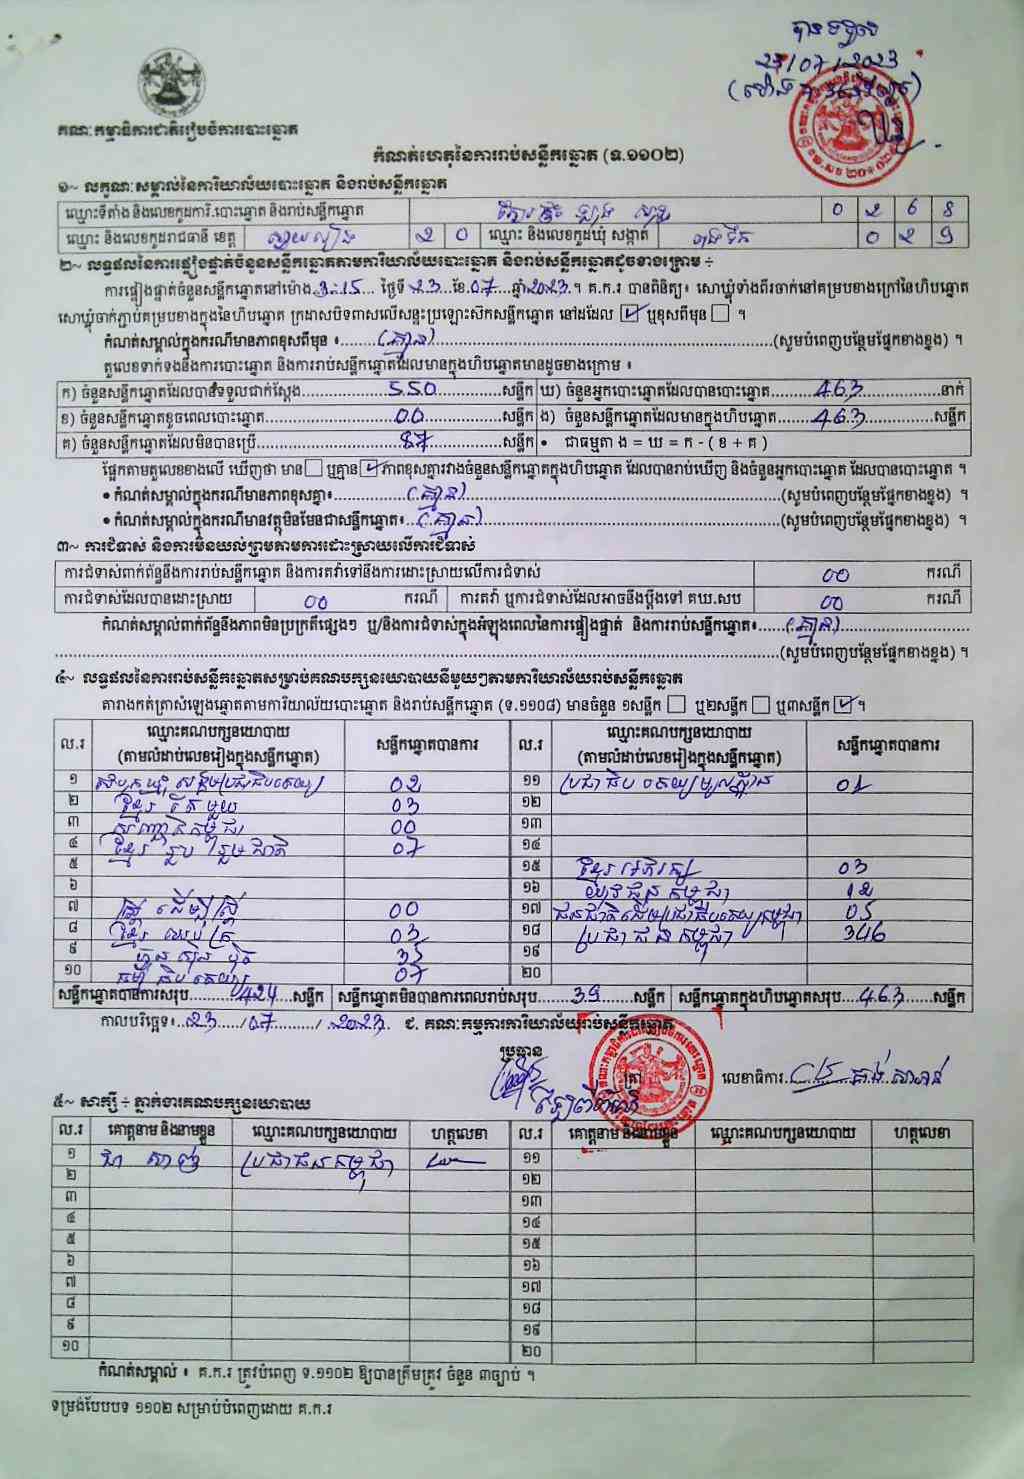 បានទទួល
23/07/2023
គណៈកម្មាធិការជាតិរៀបចំការបោះឆ្នោត
កំណត់ហេតុនៃការរាប់សន្លឹកឆ្នោត (ទ.១១០២)
១~ លក្ខណៈសម្គាល់នៃការិយាល័យបោះឆ្នោត និងរាប់សន្លឹកឆ្នោត
ឈ្មោះទីតាំង និងលេខកូដការិ.បោះឆ្នោត និងរាប់សន្លឹកឆ្នោត 0 2 6 8
ឈ្មោះ និងលេខកូដរាជធានី ខេត្ត ស្វាយរៀង 2 0 ឈ្មោះ និងលេខកូដឃុំ សង្កាត់ 0 2 9
២~ លទ្ធផលនៃការផ្ទៀងផ្ទាត់ចំនួនសន្លឹកឆ្នោតតាមការិយាល័យបោះឆ្នោត និងរាប់សន្លឹកឆ្នោតដូចខាងក្រោម ÷
ការផ្ទៀងផ្ទាត់ចំនួនសន្លឹកឆ្នោតនៅម៉ោង 3:15 ថ្ងៃទី 23 ខែ 07 ឆ្នាំ 2023 ។ គ.ក.រ បានពិនិត្យ៖ សោឃ្លុំទាំងពីរចាក់នៅគម្របខាងក្រៅនៃហិបឆ្នោត
សោឃ្លុំចាក់ភ្ជាប់គម្របខាងក្នុងនៃហិបឆ្នោត ក្រដាសបិទពាសលើសន្ទះប្រឡោះស៊កសន្លឹកឆ្នោត នៅដដែល ☑ ឬខុសពីមុន ☐ ។
កំណត់សម្គាល់ក្នុងករណីមានភាពខុសពីមុន ៖ (គ្មាន) (សូមបំពេញបន្ថែមផ្នែកខាងខ្នង) ។
តួលេខទាក់ទងនឹងការបោះឆ្នោត និងការរាប់សន្លឹកឆ្នោតដែលមានក្នុងហិបឆ្នោតមានដូចខាងក្រោម ៖
ក) ចំនួនសន្លឹកឆ្នោតដែលបានទទួលជាក់ស្តែង 550 សន្លឹក ឃ) ចំនួនអ្នកបោះឆ្នោតដែលបានបោះឆ្នោត 463 នាក់
ខ) ចំនួនសន្លឹកឆ្នោតខូចពេលបោះឆ្នោត 00 សន្លឹក ង) ចំនួនសន្លឹកឆ្នោតដែលមានក្នុងហិបឆ្នោត 463 សន្លឹក
គ) ចំនួនសន្លឹកឆ្នោតដែលមិនបានប្រើ 87 សន្លឹក • ជាធម្មតា ង = ឃ = ក - ( ខ + គ )
ផ្អែកតាមតួលេខខាងលើ ឃើញថា មាន ☐ ឬគ្មាន ☑ ភាពខុសគ្នារវាងចំនួនសន្លឹកឆ្នោតក្នុងហិបឆ្នោត ដែលបានរាប់ឃើញ និងចំនួនអ្នកបោះឆ្នោត ដែលបានបោះឆ្នោត ។
• កំណត់សម្គាល់ក្នុងករណីមានភាពខុសគ្នា៖ (គ្មាន) (សូមបំពេញបន្ថែមផ្នែកខាងខ្នង) ។
• កំណត់សម្គាល់ក្នុងករណីមានវត្ថុមិនមែនជាសន្លឹកឆ្នោត៖ (គ្មាន) (សូមបំពេញបន្ថែមផ្នែកខាងខ្នង) ។
៣~ ការជំទាស់ និងការមិនយល់ព្រមតាមការដោះស្រាយលើការជំទាស់
ការជំទាស់ពាក់ព័ន្ធនឹងការរាប់សន្លឹកឆ្នោត និងការតវ៉ាទៅនឹងការដោះស្រាយលើការជំទាស់ 00 ករណី
ការជំទាស់ដែលបានដោះស្រាយ 00 ករណី ការតវ៉ា ឬការជំទាស់ដែលអាចនឹងប្តឹងទៅ គឃ.សប 00 ករណី
កំណត់សម្គាល់ពាក់ព័ន្ធនឹងភាពមិនប្រក្រតីផ្សេងៗ ឬ/និងការជំទាស់ក្នុងអំឡុងពេលនៃការផ្ទៀងផ្ទាត់ និងការរាប់សន្លឹកឆ្នោត៖ (គ្មាន)
(សូមបំពេញបន្ថែមផ្នែកខាងខ្នង) ។
៤~ លទ្ធផលនៃការរាប់សន្លឹកឆ្នោតសម្រាប់គណបក្សនយោបាយនីមួយៗតាមការិយាល័យរាប់សន្លឹកឆ្នោត
តារាងកត់ត្រាសំឡេងឆ្នោតតាមការិយាល័យបោះឆ្នោត និងរាប់សន្លឹកឆ្នោត (ទ.១១០៨) មានចំនួន ១សន្លឹក ☐ ឬ២សន្លឹក ☐ ឬ៣សន្លឹក ☑ ។
ល.រ ឈ្មោះគណបក្សនយោបាយ (តាមលំដាប់លេខរៀងក្នុងសន្លឹកឆ្នោត) សន្លឹកឆ្នោតបានការ ល.រ ឈ្មោះគណបក្សនយោបាយ (តាមលំដាប់លេខរៀងក្នុងសន្លឹកឆ្នោត) សន្លឹកឆ្នោតបានការ
១ សំបុកឃ្មុំសង្គមប្រជាធិបតេយ្យ 02 ១១ ប្រជាធិបតេយ្យមូលដ្ឋាន 01
២ ខ្មែរតែមួយ 03 ១២
៣ សញ្ជាតិកម្ពុជា 00 ១៣
៤ ខ្មែររួបរួមជាតិ 07 ១៤
៥ ១៥ ខ្មែរអភិរក្ស 03
៦ ១៦ យុវជនកម្ពុជា 12
៧ ស្ត្រីដើម្បីស្ត្រី 00 ១៧ ជនជាតិដើមប្រជាធិបតេយ្យកម្ពុជា 05
៨ ខ្មែរឈប់ក្រ 03 ១៨ ប្រជាជនកម្ពុជា 346
៩ ហ្វ៊ុនស៊ិនប៉ិច 35 ១៩
១០ ធម្មាធិបតេយ្យ 07 ២០
សន្លឹកឆ្នោតបានការសរុប 424 សន្លឹក សន្លឹកឆ្នោតមិនបានការពេលរាប់សរុប 39 សន្លឹក សន្លឹកឆ្នោតក្នុងហិបឆ្នោតសរុប 463 សន្លឹក
កាលបរិច្ឆេទ៖ 23 / 07 / 2023 ជ. គណៈកម្មការការិយាល័យរាប់សន្លឹកឆ្នោត
ប្រធាន
ត្រា លេខាធិការ
៥~ សាក្សី ÷ ភ្នាក់ងារគណបក្សនយោបាយ
ល.រ គោត្តនាម និងនាមខ្លួន ឈ្មោះគណបក្សនយោបាយ ហត្ថលេខា ល.រ គោត្តនាម និងនាមខ្លួន ឈ្មោះគណបក្សនយោបាយ ហត្ថលេខា
១ ប្រជាជនកម្ពុជា ១១
២ ១២
៣ ១៣
៤ ១៤
៥ ១៥
៦ ១៦
៧ ១៧
៨ ១៨
៩ ១៩
១០ ២០
កំណត់សម្គាល់ ៖ គ.ក.រ ត្រូវបំពេញ ទ.១១០២ ឱ្យបានត្រឹមត្រូវ ចំនួន ៣ច្បាប់ ។
ទម្រង់បែបបទ ១១០២ សម្រាប់បំពេញដោយ គ.ក.រ